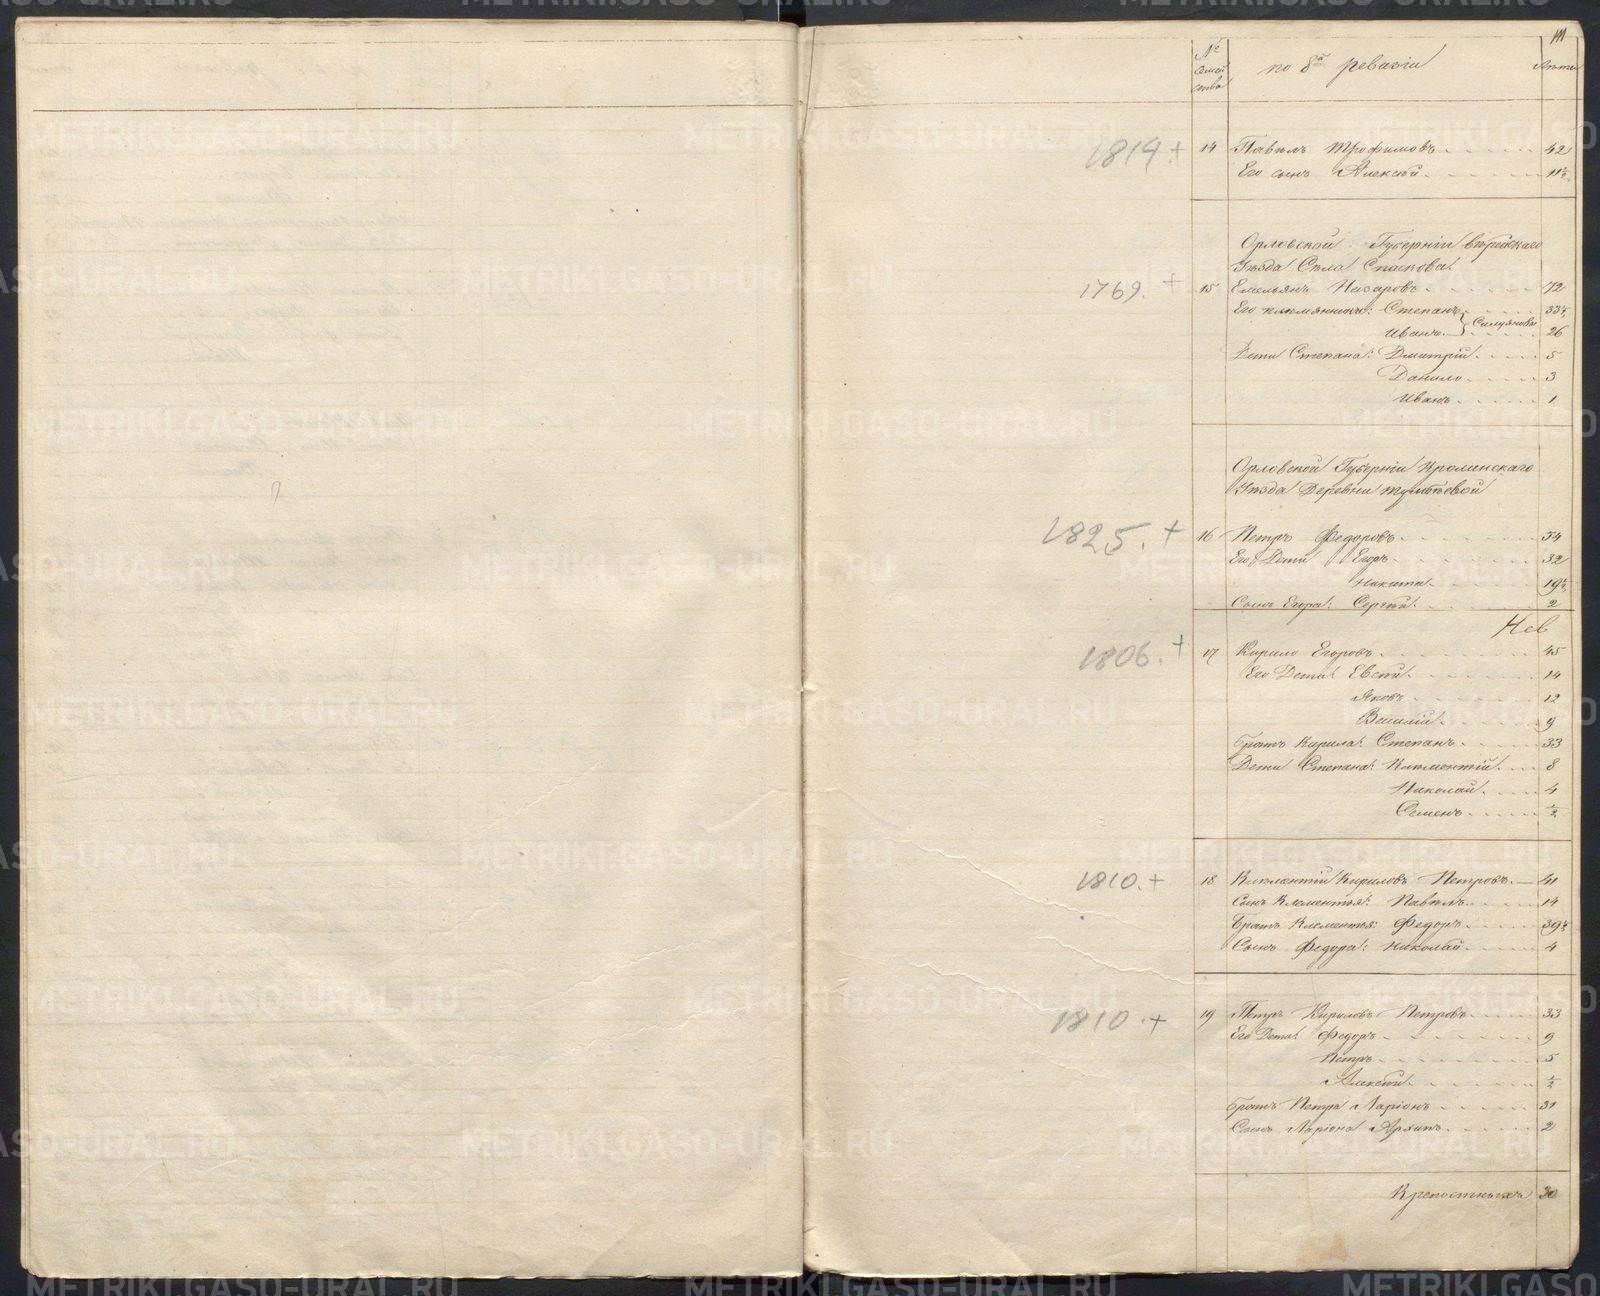 111
№ семейства
по 8й ревизіи
Лѣта
1814. + 14 Павелъ Трофимовъ 42
Его сынъ Алексѣй 11½
Орловской Губерніи
Уѣзда Села Спаскова
1769. + 15 Емельянъ Назаровъ 72
Его племянники: Степанъ 33½
Иванъ 26
Дети Степана: Дмитрій 5
Данило 3
Иванъ 1
Орловской Губерніи Кроминскаго
Уѣзда Деревни
1825. + 16 Петръ Федоровъ 54
Его Дети Егоръ 32
Никита 19½
Сынъ Егора: Сергѣй 2
1806. + 17 Кирило Егоровъ 45
Его Дети Евсѣй 14
Яковъ 12
Василій 9
Братъ Кирила: Степанъ 33
Дети Степана: Клементій 8
Николай 4
Семенъ ½
1810. + 18 Клементій Кириловъ Петровъ 41
Сынъ Клементья: Павелъ 14
Братъ Клементья: Федоръ 39½
Сынъ Федора: Николай 4
1810. + 19 Петръ Кириловъ Петровъ 33
Его Дети Федоръ 9
Петръ 5
Алексѣй ½
Братъ Петра Ларіонъ 31
Сынъ Ларіона Архипъ 2
Крепостныхъ 30
METRIKI.GASO-URAL.RU